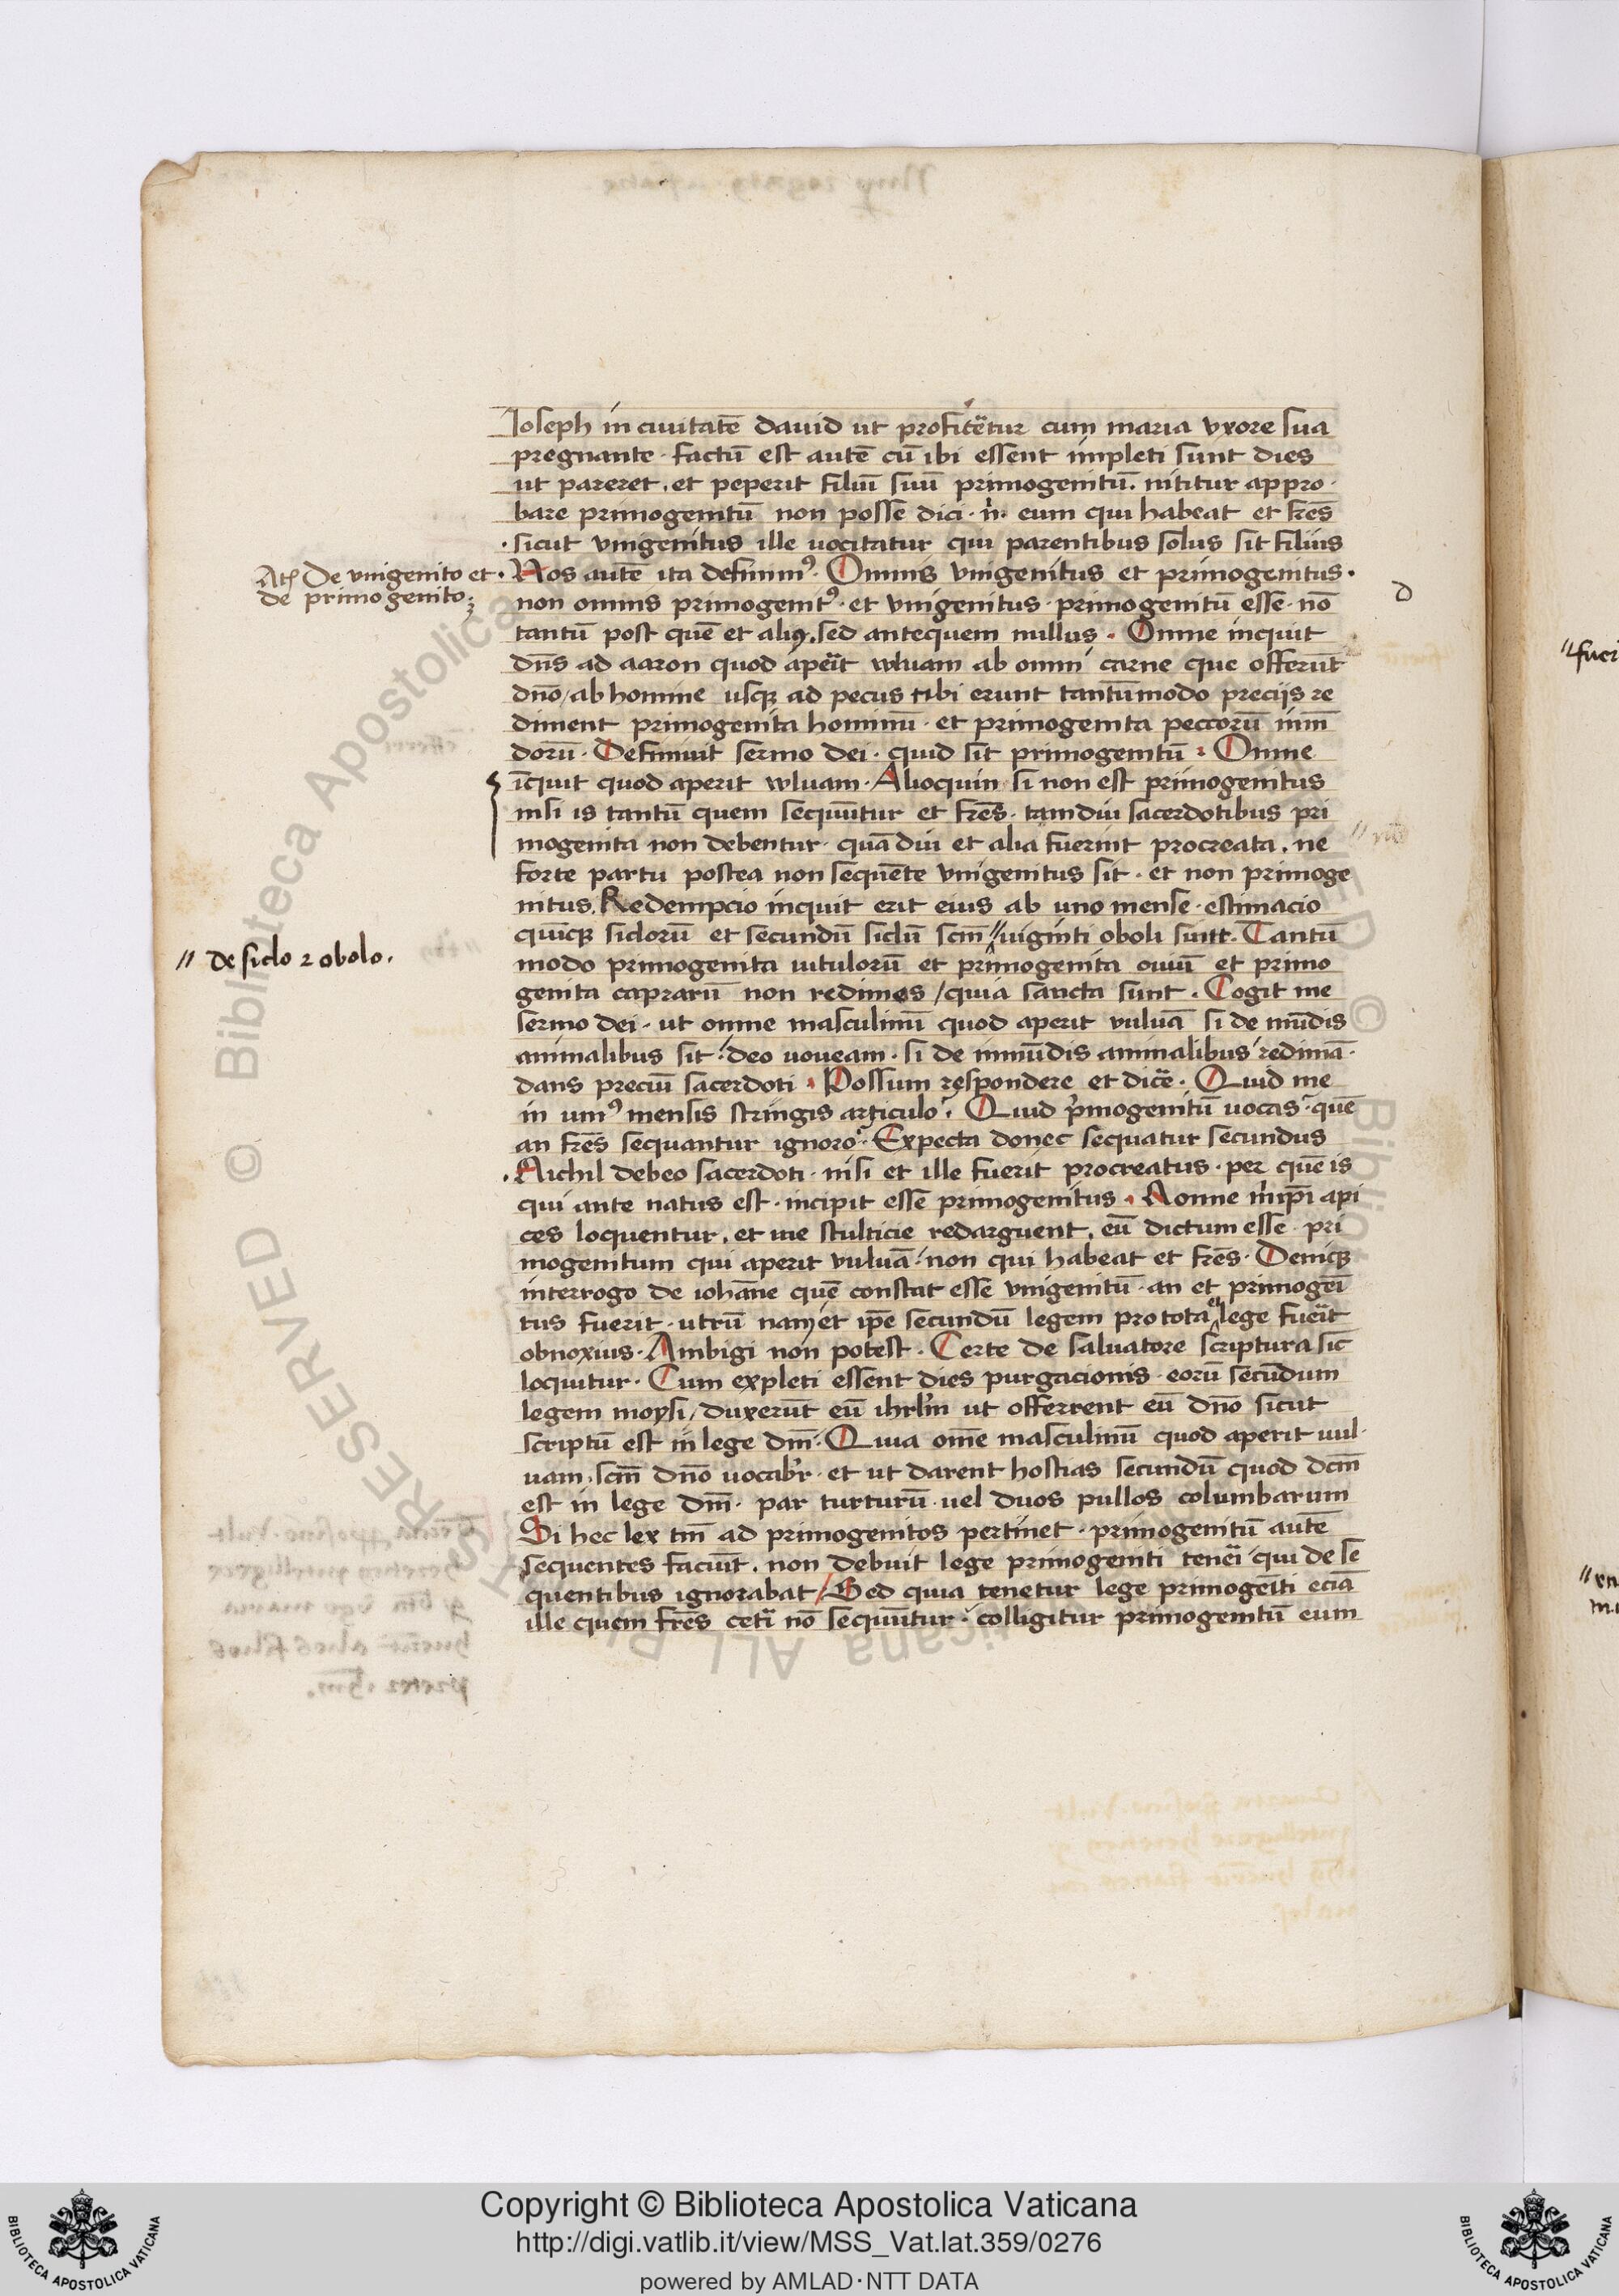 Ioseph in ciuitatē dauid ut profitēretur cum maria vxore sua
pregnante · factū est autē cū ibi essent impleti sunt dies
ut pareret . et peperit filiū suū primogenitū . nititur appro·
bare primogenitū non posse dici · n̄ · eum qui habeat et fr̄es
· sicut vnigenitus ille uocitatur qui parentibus solus sit filius
De vnigenito et
de primogenito
· Nos autē ita definimꝰ · Omnis vnigenitus et primogenitus ·
D
non omnis primogenitꝰ · et vnigenitus · primogenitū esse · nō
tantū post quē et alij . sed antequem nullus . Omne inquit
dn̄s ad aaron quod aperit wluam ab omni carne que offerūt
dn̄o / ab homine usqꝫ ad pecus tibi erunt tantūmodo precijs re
diment primogenita hominū · et primogenita peccorū inm̄
dorū · Definiuit sermo dei · quid sit primogenitū . Omne
īquit quod aperit wluam · Alioquin si non est primogenitus
nisi is tantū quem sequūtur et fr̄es · tamdiu sacerdotibus pri
mogenita non debentur · quādiu et alia fuerint procreata . ne
forte partu postea non sequēte vnigenitus sit · et non primoge
nitus . Redempcio inquit erit eius ab uno mense · estimacio
quīqꝫ siclorū et secundū siclū scm̄ // uiginti oboli sunt . Tantū
// de siclo ⁊ obolo .
modo primogenita uitulorū et primogenita ouiū et primo
genita caprarū non redimes / quia sancta sunt . Cogit me
sermo dei · ut omne masculinū quod aperit vuluā si de mūdis
animalibus sit · deo uoueam · si de inmūdis animalibus redimā ·
dans preciū sacerdoti . Possum respondere et dicere · Quid me
in uniꝰ mensis stringis articulo . Quid pͥmogenitū uocas · quē
an fr̄es sequantur ignoro · Expecta donec sequatur secundus
· Nichil debeo sacerdoti · nisi et ille fuerit procreatus · per quē is
qui ante natus est · incipit esse primogenitus . Nonne michi ip̄i api
ces loquentur , et me stulticie redarguent , eū dictum esse · pri
mogenitum qui aperit vuluā · non qui habeat et fr̄es · Deniqꝫ
interrogo de iohāne quē constat esse vnigenitū · an et primogeī
tus fuerit · utrū nam et ip̄e secundū legem pro tota lege fuerit
obnoxius · Ambigi non potest . Certe de saluatore scriptura sic
loquitur · Cum expleti essent dies purgacionis · eorū secūdum
legem moysi / duxerūt eū ihrl̄m ut offerrent eū dn̄o sicut
scriptū est in lege dn̄i · Quia om̄e masculinū quod aperit uul·
uam . scm̄ dn̄o uocabr̄ · et ut darent hostias secundū quod dcm̄
est in lege dn̄i · par turturū · uel duos pullos columbarum
Si hec lex tm̄ ad primogenitos pertinet · primogenitū autē
sequentes faciūt . non debuit lege primogeniti teneri qui de se
quentibus ignorabat / Sed quia tenetur lege primogēiti eciā
ille quem fr̄es ceteri nō sequūtur · colligitur primogenitū eum
Copyright © Biblioteca Apostolica Vaticana
http://digi.vatlib.it/view/MSS_Vat.lat.359/0276
powered by AMLAD·NTT DATA
BIBLIOTECA APOSTOLICA VATICANA
BIBLIOTECA APOSTOLICA VATICANA